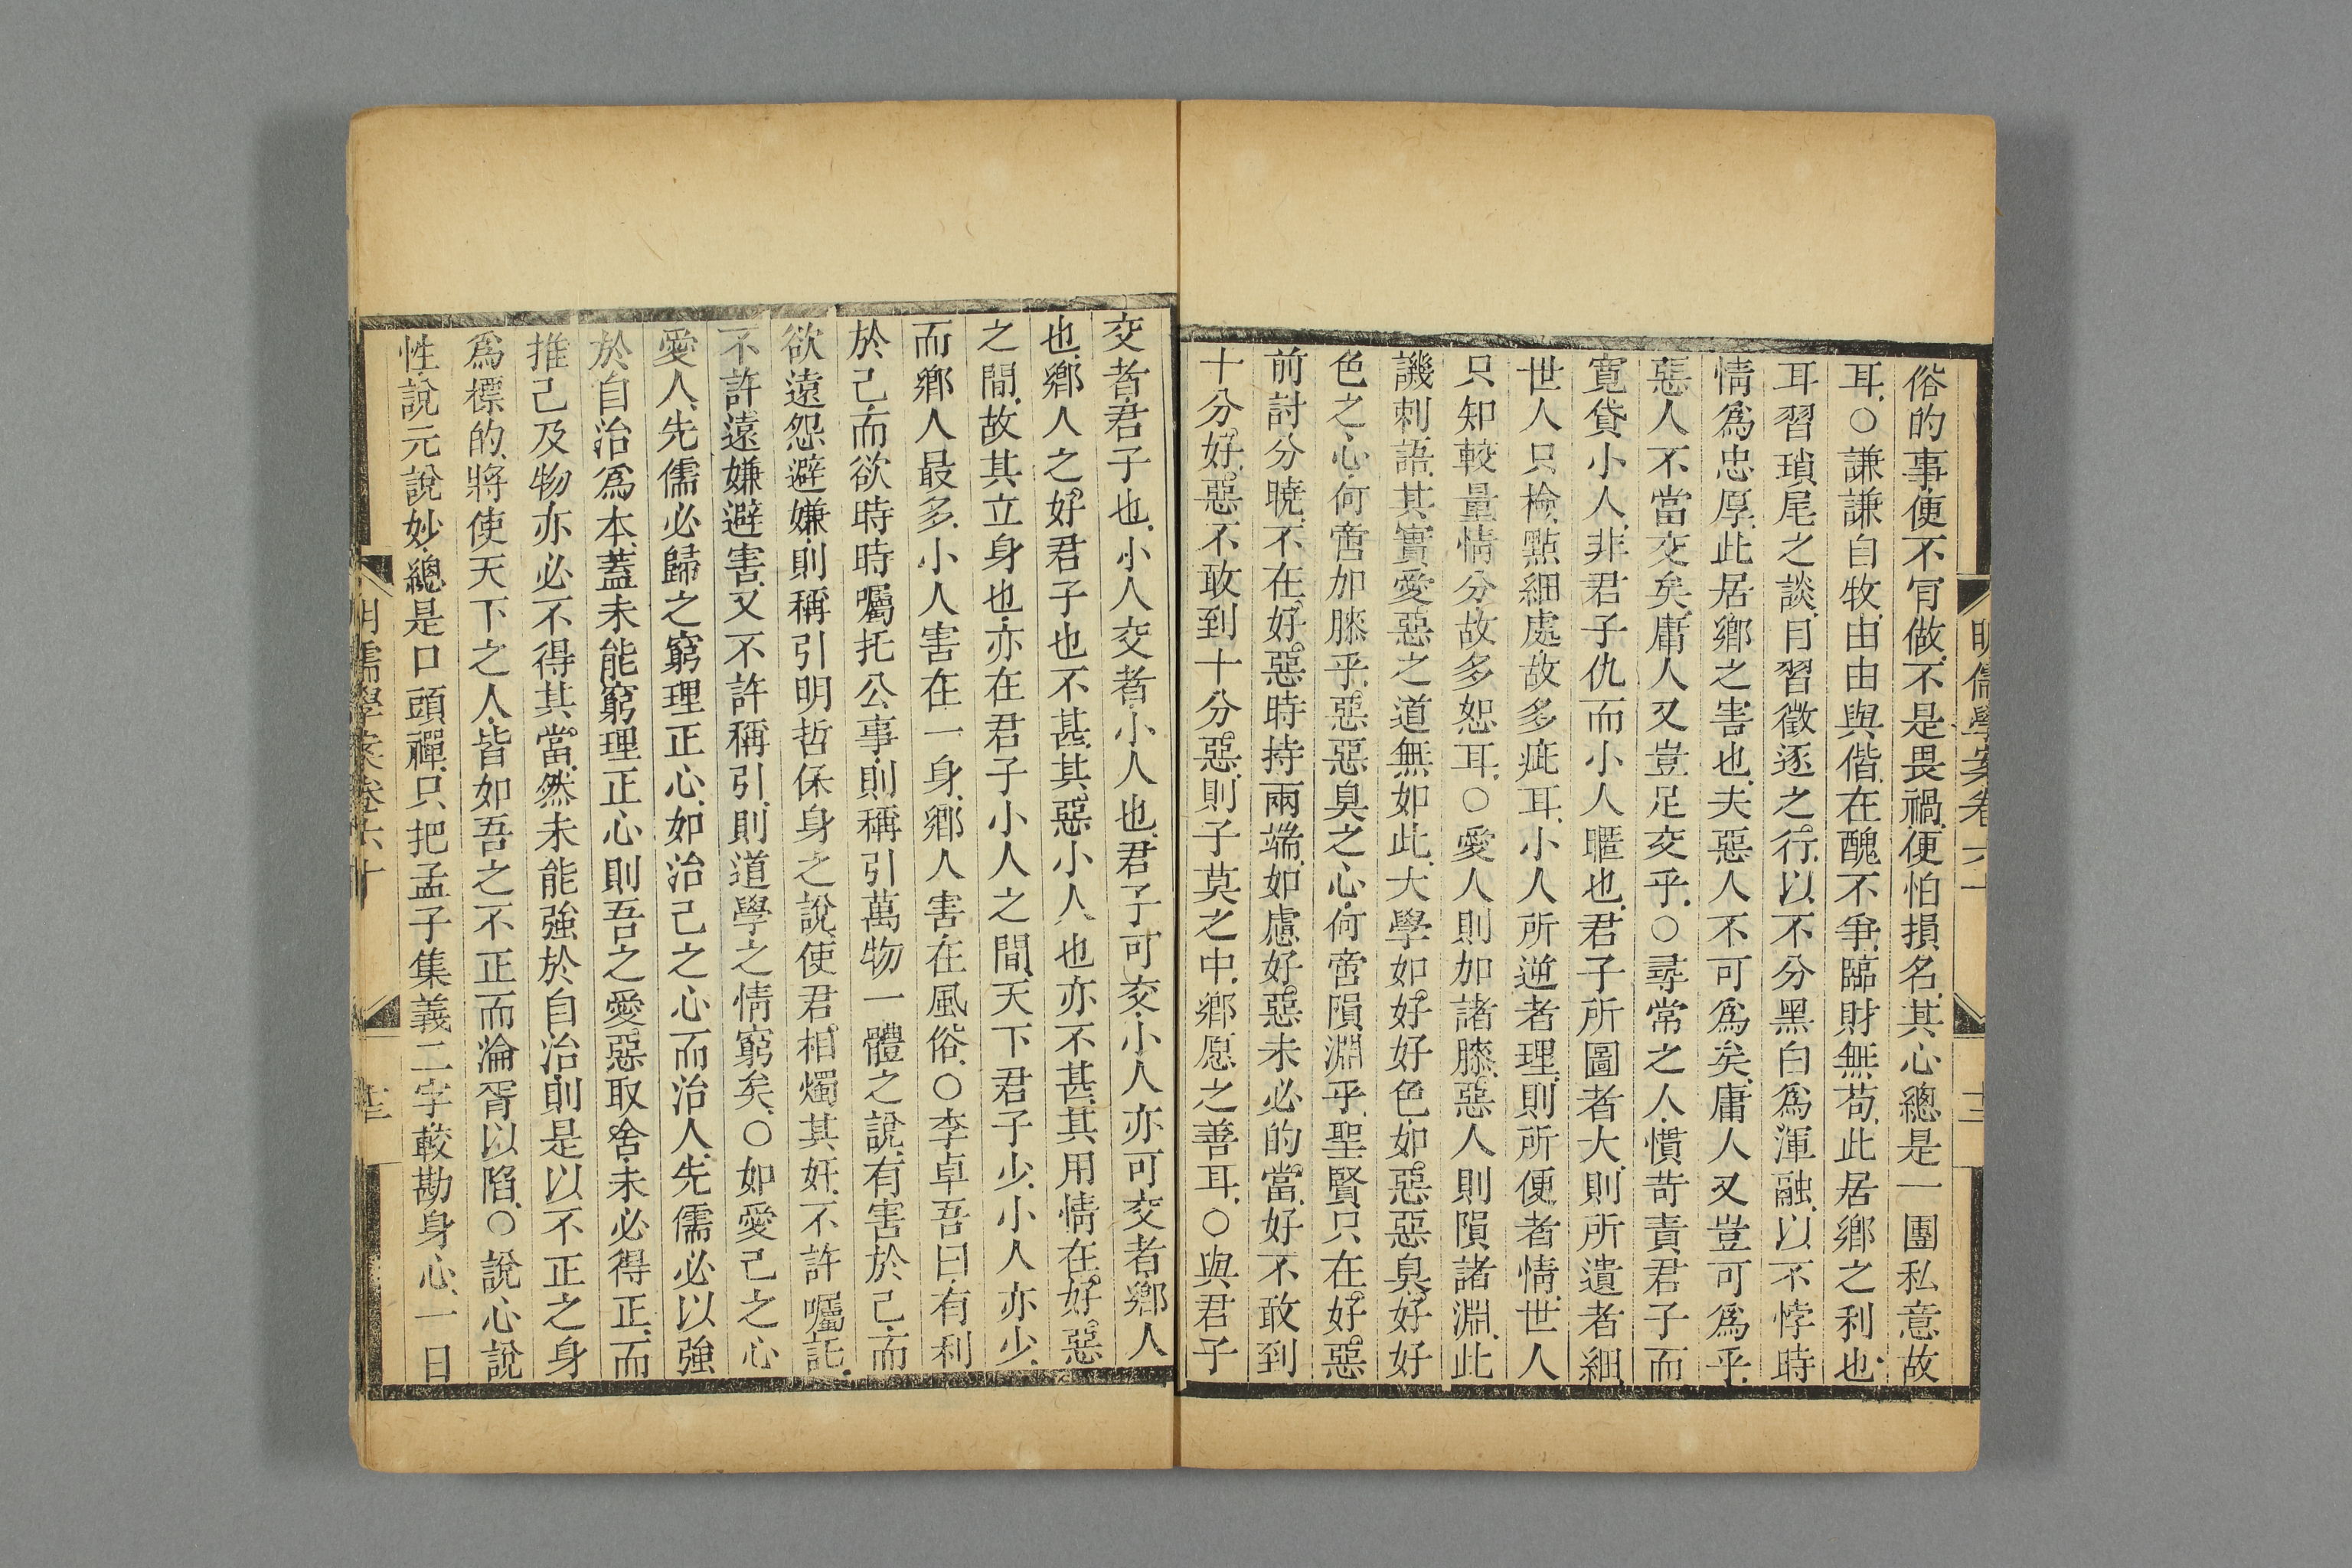 俗的事、便不肎做、不是畏禍、便怕損名、其心總是一團私意故
耳、○謙謙自牧、由由與偕、在醜不爭、臨財無苟、此居鄉之利也、
耳習瑣尾之談、目習徵逐之行、以不分黑白爲渾融、以不悖時
情爲忠厚、此居鄉之害也、夫惡人不可爲矣、庸人又豈可爲乎、
惡人不當交矣、庸人又豈足交乎、○尋常之人、慣苛責君子而
寛貸小人、非君子仇而小人暱也、君子所圖者大、則所遺者細、
世人只檢點細處、故多疵耳、小人所逆者理、則所便者情、世人
只知較量情分、故多恕耳、○愛人則加諸膝、惡人則隕諸淵、此
譏刺語、其實愛惡之道無如此、大學如好好色、如惡惡臭、好好
色之心、何啻加膝乎、惡惡臭之心、何啻隕淵乎、聖賢只在好惡
前討分曉、不在好惡時持兩端、如慮好惡未必的當、好不敢到
十分好、惡不敢到十分惡、則子莫之中、鄉愿之善耳、○與君子
明儒學案卷六十
十三
交者、君子也、小人交者、小人也、君子可交、小人亦可交者、鄉人
也、鄉人之好君子也不甚、其惡小人也亦不甚、其用情在好惡
之間、故其立身也、亦在君子小人之間、天下君子少、小人亦少、
而鄉人最多、小人害在一身、鄉人害在風俗、○李卓吾曰、有利
於己、而欲時時囑托公事、則稱引萬物一體之說、有害於己、而
欲遠怨避嫌、則稱引明哲保身之說、使君相燭其奸、不許囑託、
不許遠嫌避害、又不許稱引、則道學之情窮矣、○如愛己之心
愛人、先儒必歸之窮理正心、如治己之心而治人、先儒必以強
於自治爲本、蓋未能窮理正心、則吾之愛惡取舍、未必得正、而
推己及物、亦必不得其當、然未能強於自治、則是以不正之身
爲標的、將使天下之人、皆如吾之不正而淪胥以陷、○說心說
性、說元說妙、總是口頭禪、只把孟子集義二字、較勘身心、一日
明儒學案卷六十
十三